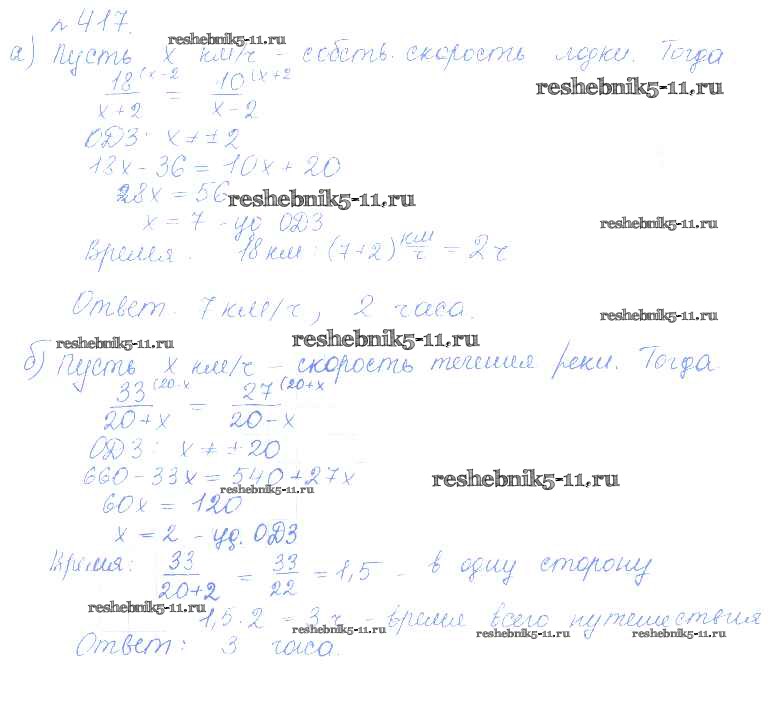 № 417.
reshebnik5-11.ru
а) Пусть x км/ч - собств. скорость лодки. Тогда
18(x-2 / x+2 = 10(x+2 / x-2
reshebnik5-11.ru
ОДЗ: x ≠ ±2
18x - 36 = 10x + 20
28x = 56
reshebnik5-11.ru
x = 7 - уд ОДЗ
reshebnik5-11.ru
Время: 18 км : (7+2) км/ч = 2 ч
Ответ. 7 км/ч, 2 часа.
reshebnik5-11.ru
reshebnik5-11.ru
reshebnik5-11.ru
б) Пусть x км/ч - скорость течения реки. Тогда
33(20-x / 20+x = 27(20+x / 20-x
ОДЗ: x ≠ ±20
660 - 33x = 540 + 27x
reshebnik5-11.ru
reshebnik5-11.ru
60x = 120
x = 2 - уд. ОДЗ
Время: 33 / 20+2 = 33 / 22 = 1,5 - в одну сторону
reshebnik5-11.ru
1,5 · 2 = 3 ч - время всего путешествия
reshebnik5-11.ru
reshebnik5-11.ru
reshebnik5-11.ru
Ответ: 3 часа.